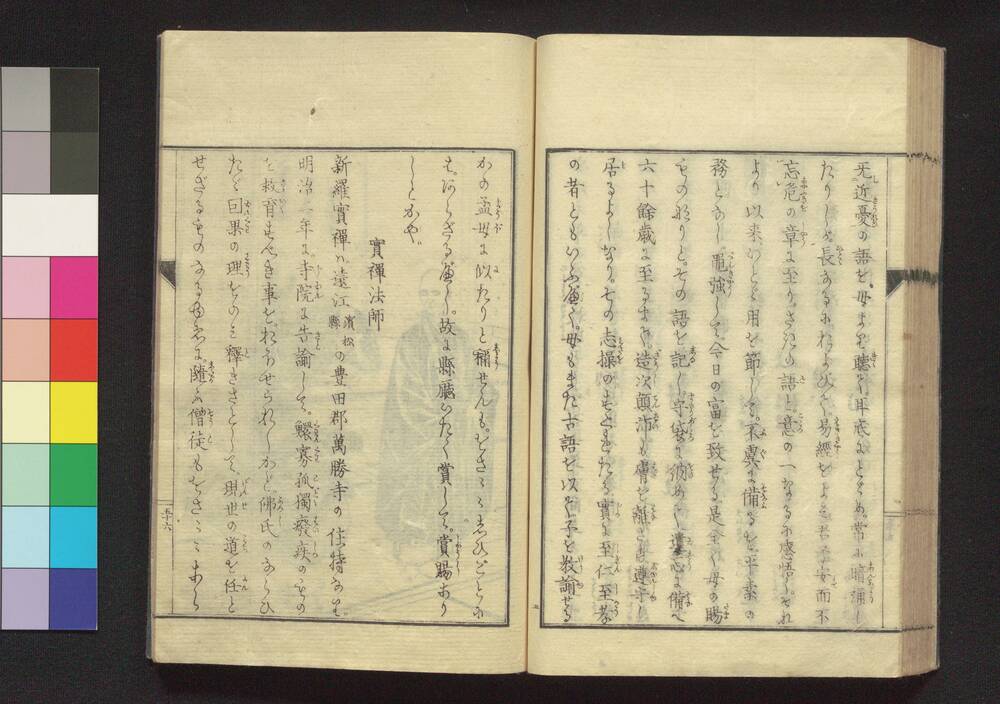 无近憂の語を。母より聴て耳底にとゞめ。常に暗誦し
たりしが。長なるにおよびて。易經をよみ。君子安而不
忘危の章に至り。さきの語と意の一なるに感悟し。それ
より以来。いとゞ用を節して。不虞に備るを平素の
務となし。黽強して。今日の富を致せるは是全く母の賜
ものなりと。その語を記し。守袋に納めて。遺忘に備へ
六十餘歳に至るまで。造次顛沛も膚を離さず遵守し
居るよしなり。その志操のすぐれたる。實に至仁至孝
の者ともいふ可く。母もまた古語を以て子を教諭せる
かの孟母に似たりと稱せんも。をさ〳〵しひごとに
もあらざる可し。故に縣廳いたく賞して。賞賜あり
しとかや。
實禪法師
新羅實禪ハ遠江濱松縣の豊田郡萬勝寺の住持なり。
明治二年に。寺院に告諭して。鰥寡孤獨癈疾のもの
を救育すべき事を。おふせられしかど。佛氏のならひ
たゞ因果の理をのミ釋きさとして。現世の道を任と
せざるものなるゆゑに。隨ふ僧徒もをさ〳〵あら
五十六